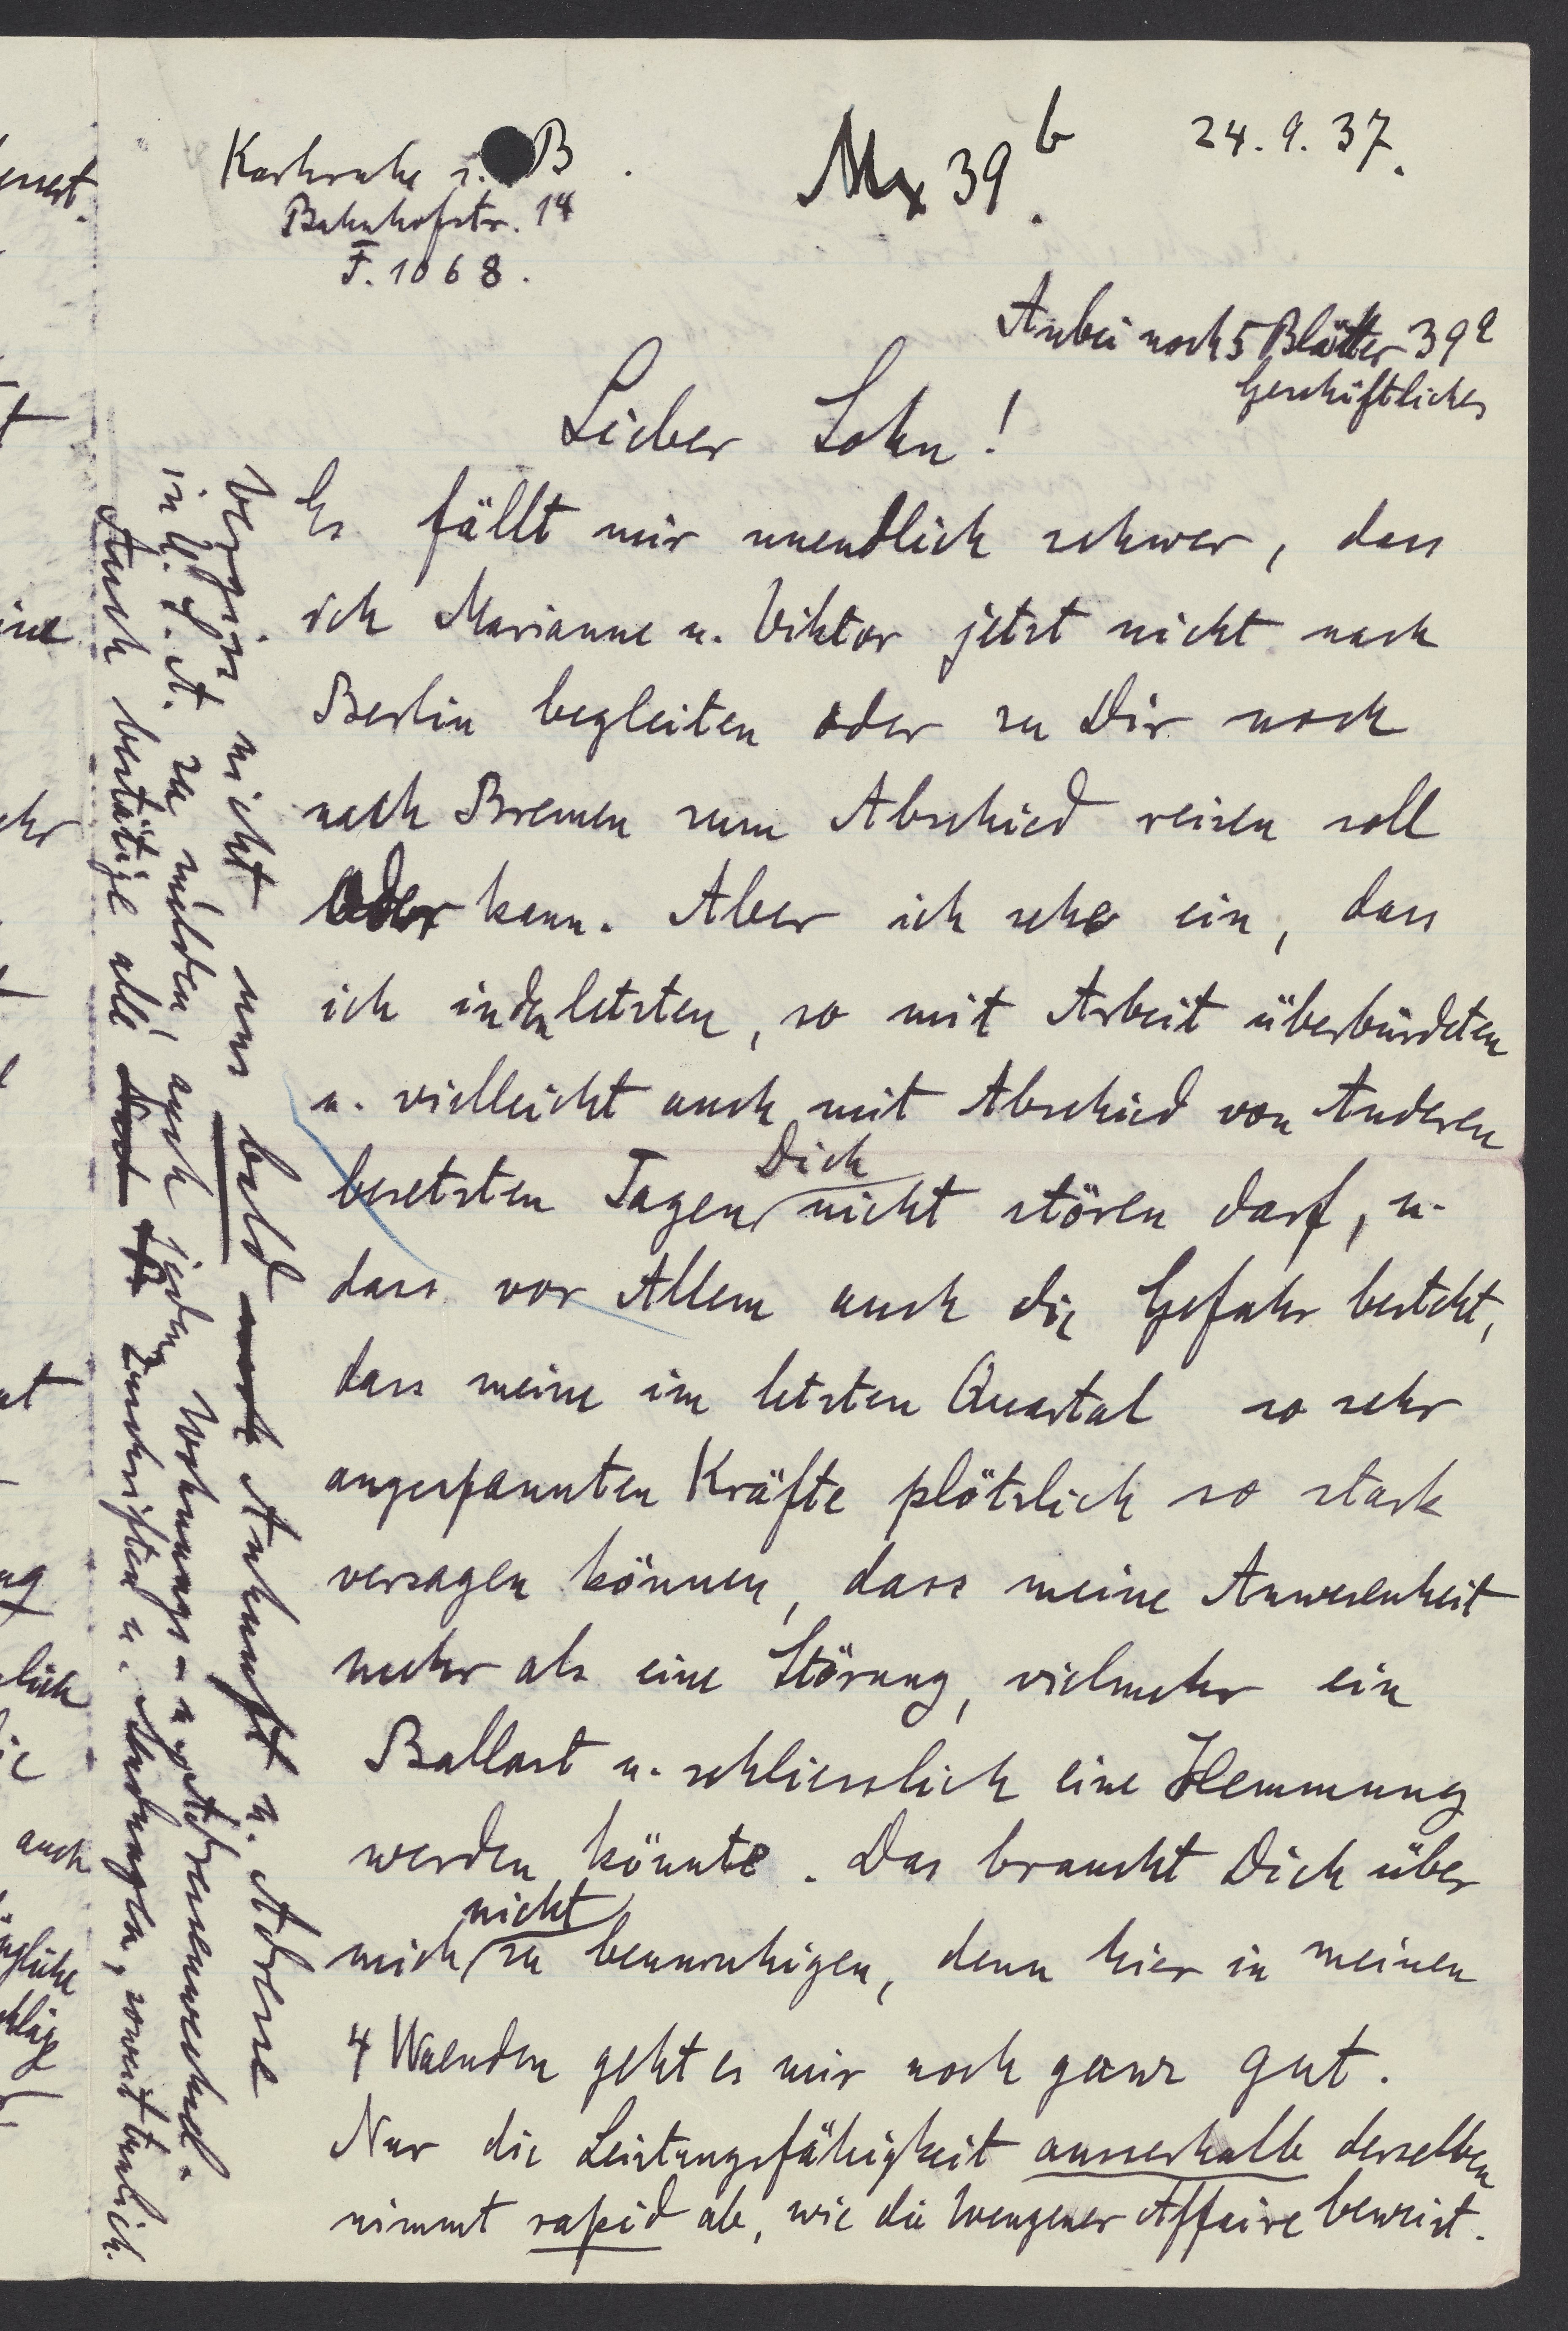 Karlsruhe i. B.
Bahnhofstr. 14
F. 1068.
Mx 39b.
24.9.37.
Anbei noch 5 Blätter 39a
Geschäftliches
Lieber Sohn!
Es fällt mir unendlich schwer, dass
ich Marianne u. Viktor jetzt nicht nach
Berlin begleiten oder zu Dir noch
nach Bremen zum Abschied reisen soll
oder kann. Aber ich sehe ein, dass
ich in den letzten, so mit Arbeit überbürdeten
u. vielleicht auch mit Abschied von Anderen
besetzten Tagen Dich nicht stören darf, u.
dass vor Allem auch die Gefahr besteht,
dass meine im letzten Quartal so sehr
angespannten Kräfte plötzlich so stark
versagen können, dass meine Anwesenheit
mehr als eine Störung, vielmehr ein
Ballast u. schliesslich eine Hemmung
werden könnte. Das braucht Dich über
mich nicht zu beunruhigen, denn hier in meinen
4 Waenden geht es mir noch ganz gut.
Nur die Leistungsfähigkeit ausserhalb derselben
nimmt rapid ab, wie die Wengener Affaire beweist.
Vergiss nicht uns bald noch Ankunft u. Adresse
in U.S.A. zu melden, auch jeden Wohnungs- u. Adressenwechsel.
Auch bestätige alle Zuschriften u. Sendungen, soweit tunlich.
ine
ehr
ng
lich
auch